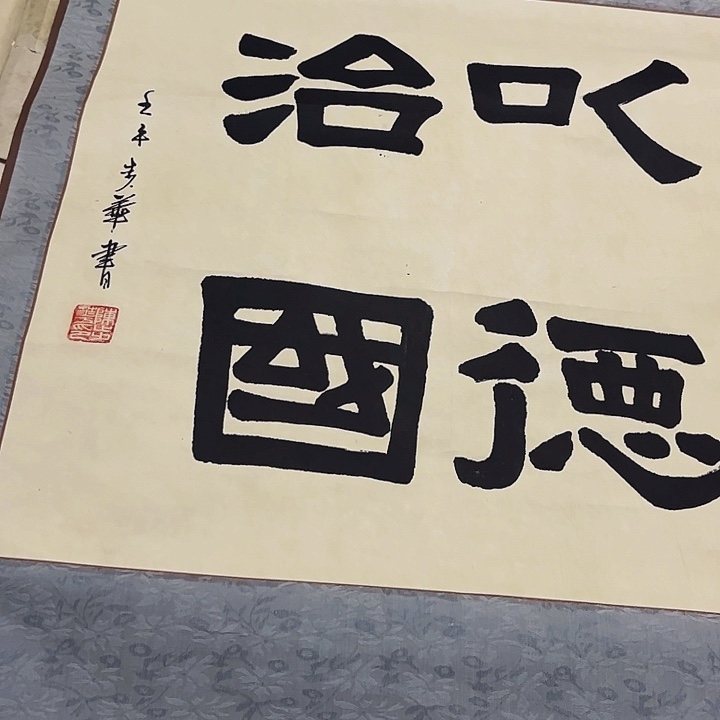 以德
治國
壬午步華書